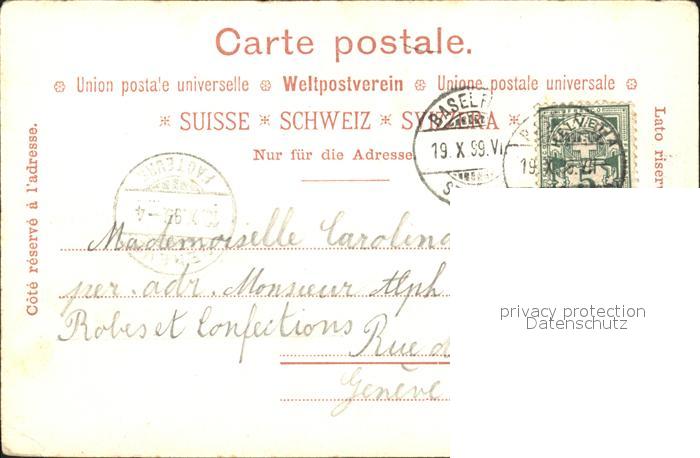 Carte postale.
Union postale universelle Weltpostverein Unione postale universale
SUISSE SCHWEIZ SVIZZERA
Nur für die Adresse.
Côté réservé à l'adresse.
Lato riser
BASEL
19. X 99. VI
HELVETIA
19. X
5
FACTEUR
Mademoiselle Carolin
per. adr. Monsieur Alph
Robes et Confections
Rue d
Genève
privacy protection
Datenschutz